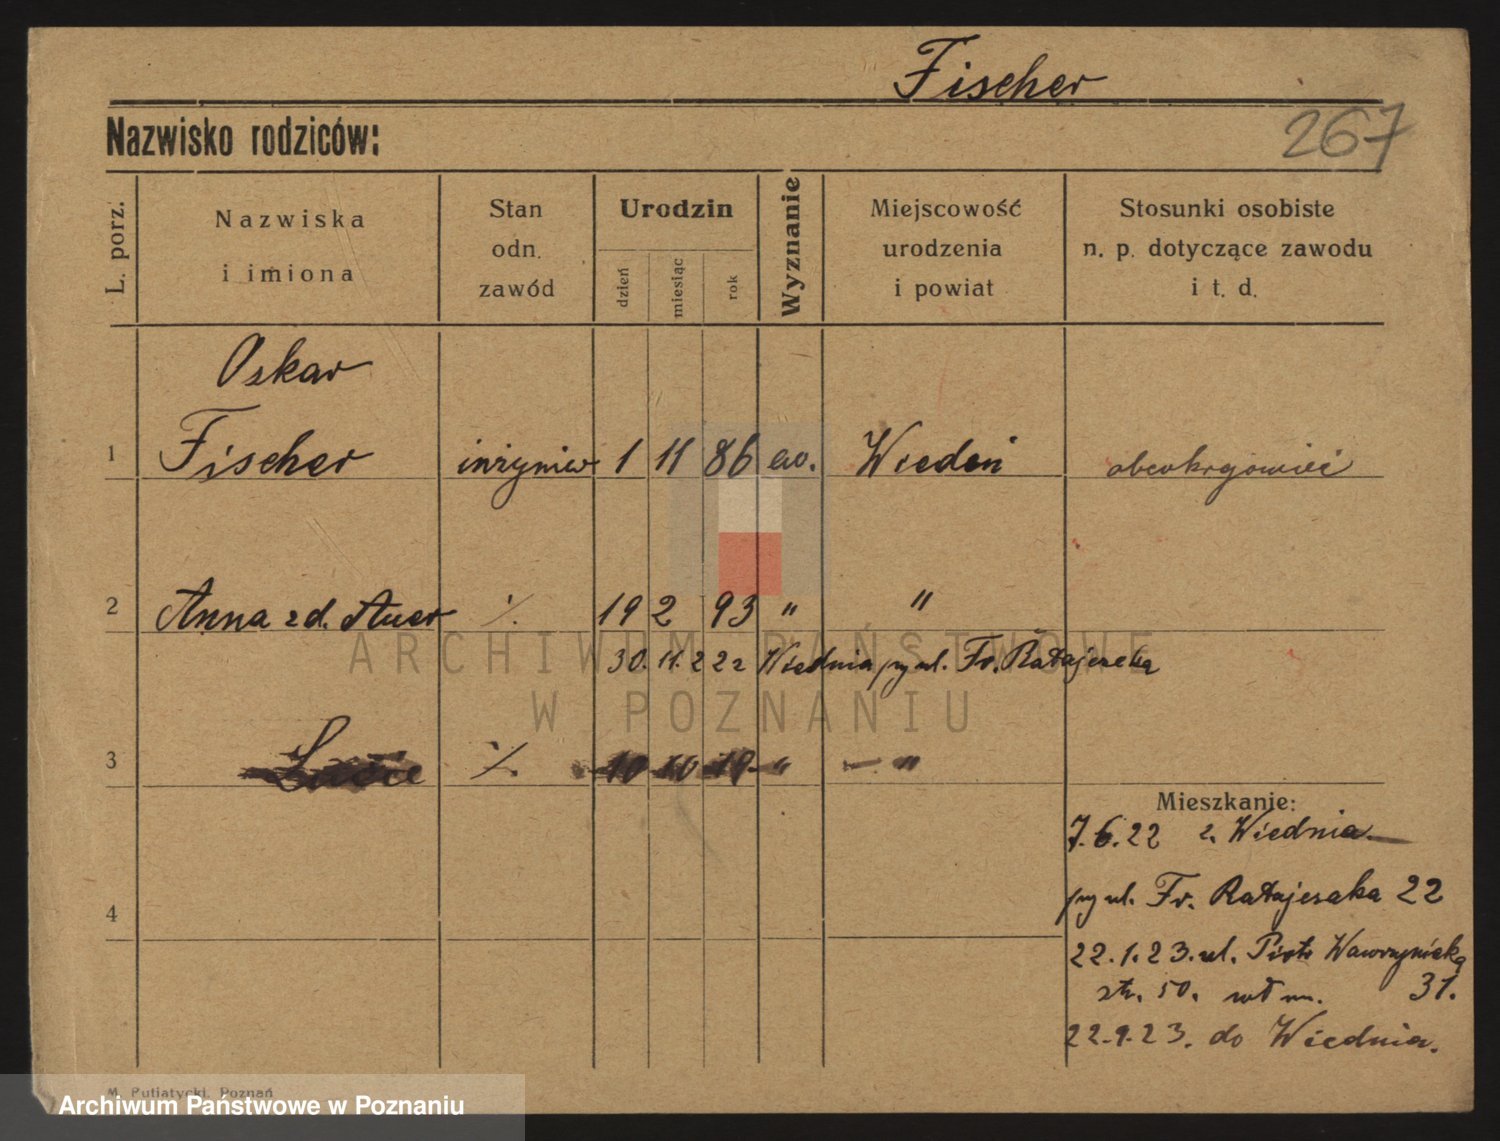 Fischer
267
Nazwisko rodziców:
L. porz.
Nazwiska
i imiona
Stan
odn.
zawód
Urodzin
dzień
miesiąc
rok
Wyznanie
Miejscowość
urodzenia
i powiat
Stosunki osobiste
n. p. dotyczące zawodu
i t. d.
Oskar
1 Fischer inżynier 1 11 86 ew. Wiedeń obcokrajowiec
2 Anna zd. Auer ·/. 19 2 93 " "
30. 11. 222 Wiednia przy ul. Fr. Ratajczaka
ARCHIWUM PAŃSTWOWE
W POZNANIU
3 ·/. 10 10 19 " — "
Mieszkanie:
7.6.22 z Wiednia
przy ul. Fr. Ratajczaka 22
4
22.1.23. ul. Piotr Wawrzyniaka
str. 50. 31.
22.9.23. do Wiednia.
M. Putiatycki, Poznań
Archiwum Państwowe w Poznaniu